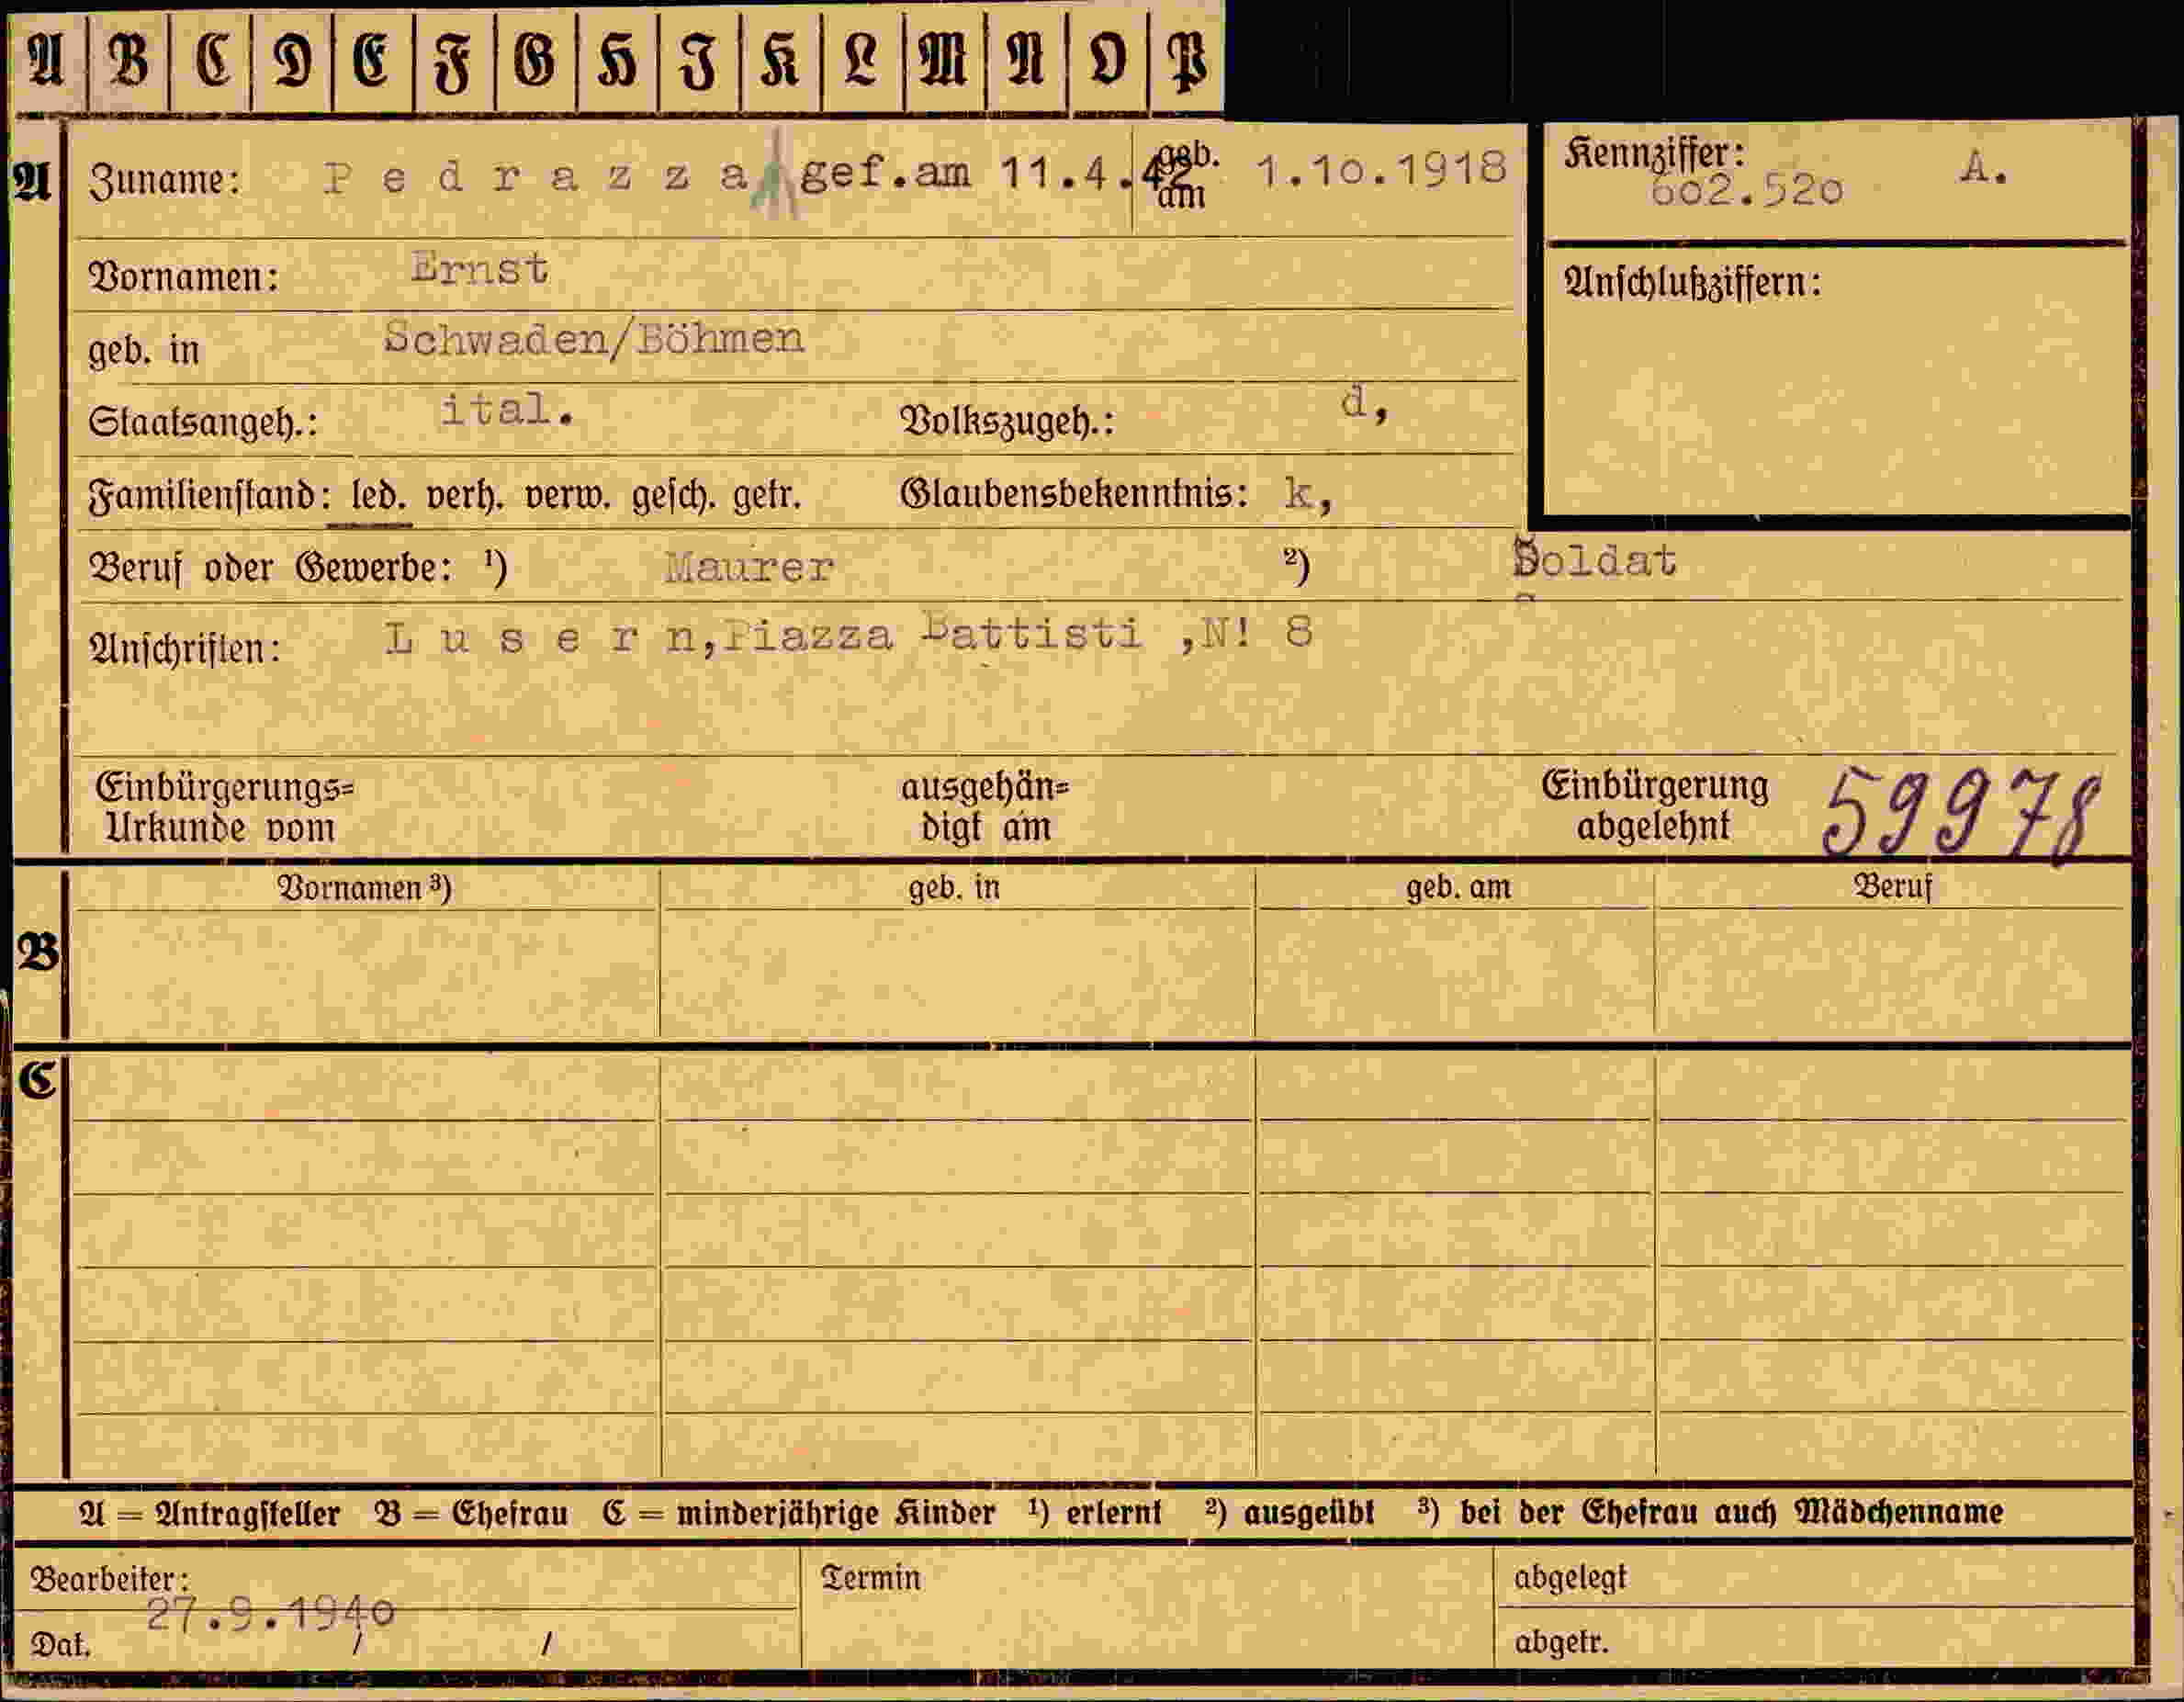 A B C D E F G H I K L M N O P
A Zuname: Pedrazza gef.am 11.4.42 geb. am 1.10.1918 Kennziffer: 602.520 A.
Vornamen: Ernst Anschlußziffern:
geb. in Schwaden/Böhmen
Staatsangeh.: ital. Volkszugeh.: d,
Familienstand: led. verh. verw. gesch. getr. Glaubensbekenntnis: k,
Beruf oder Gewerbe: ¹) Maurer ²) Soldat
Anschriften: Lusern,Piazza Battisti ,N! 8
Einbürgerungs=
Urkunde vom
ausgehän=
digt am
Einbürgerung
abgelehnt
59978
Vornamen ³) geb. in geb. am Beruf
B
C
A = Antragsteller B = Ehefrau C = minderjährige Kinder ¹) erlernt ²) ausgeübt ³) bei der Ehefrau auch Mädchenname
Bearbeiter: Termin abgelegt
27.9.1940
Dat. / / abgetr.